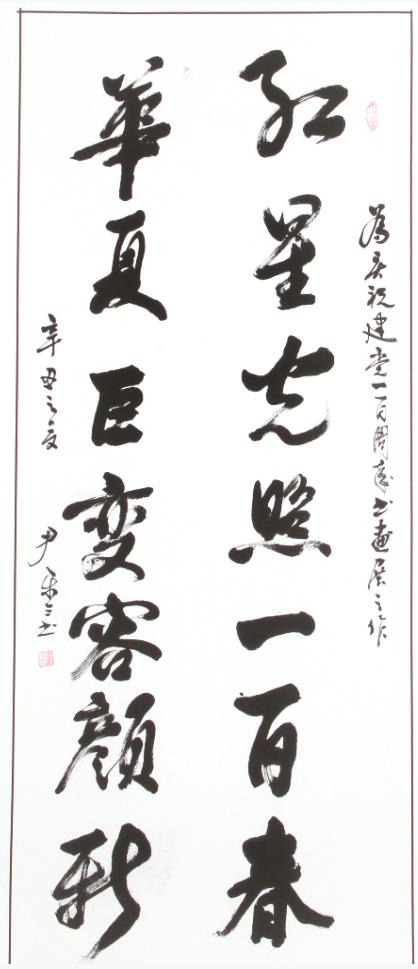 為庆祝建党一百周年书画展之作
红星光照一百春
華夏巨变容顔新
辛丑之夏
尹
书